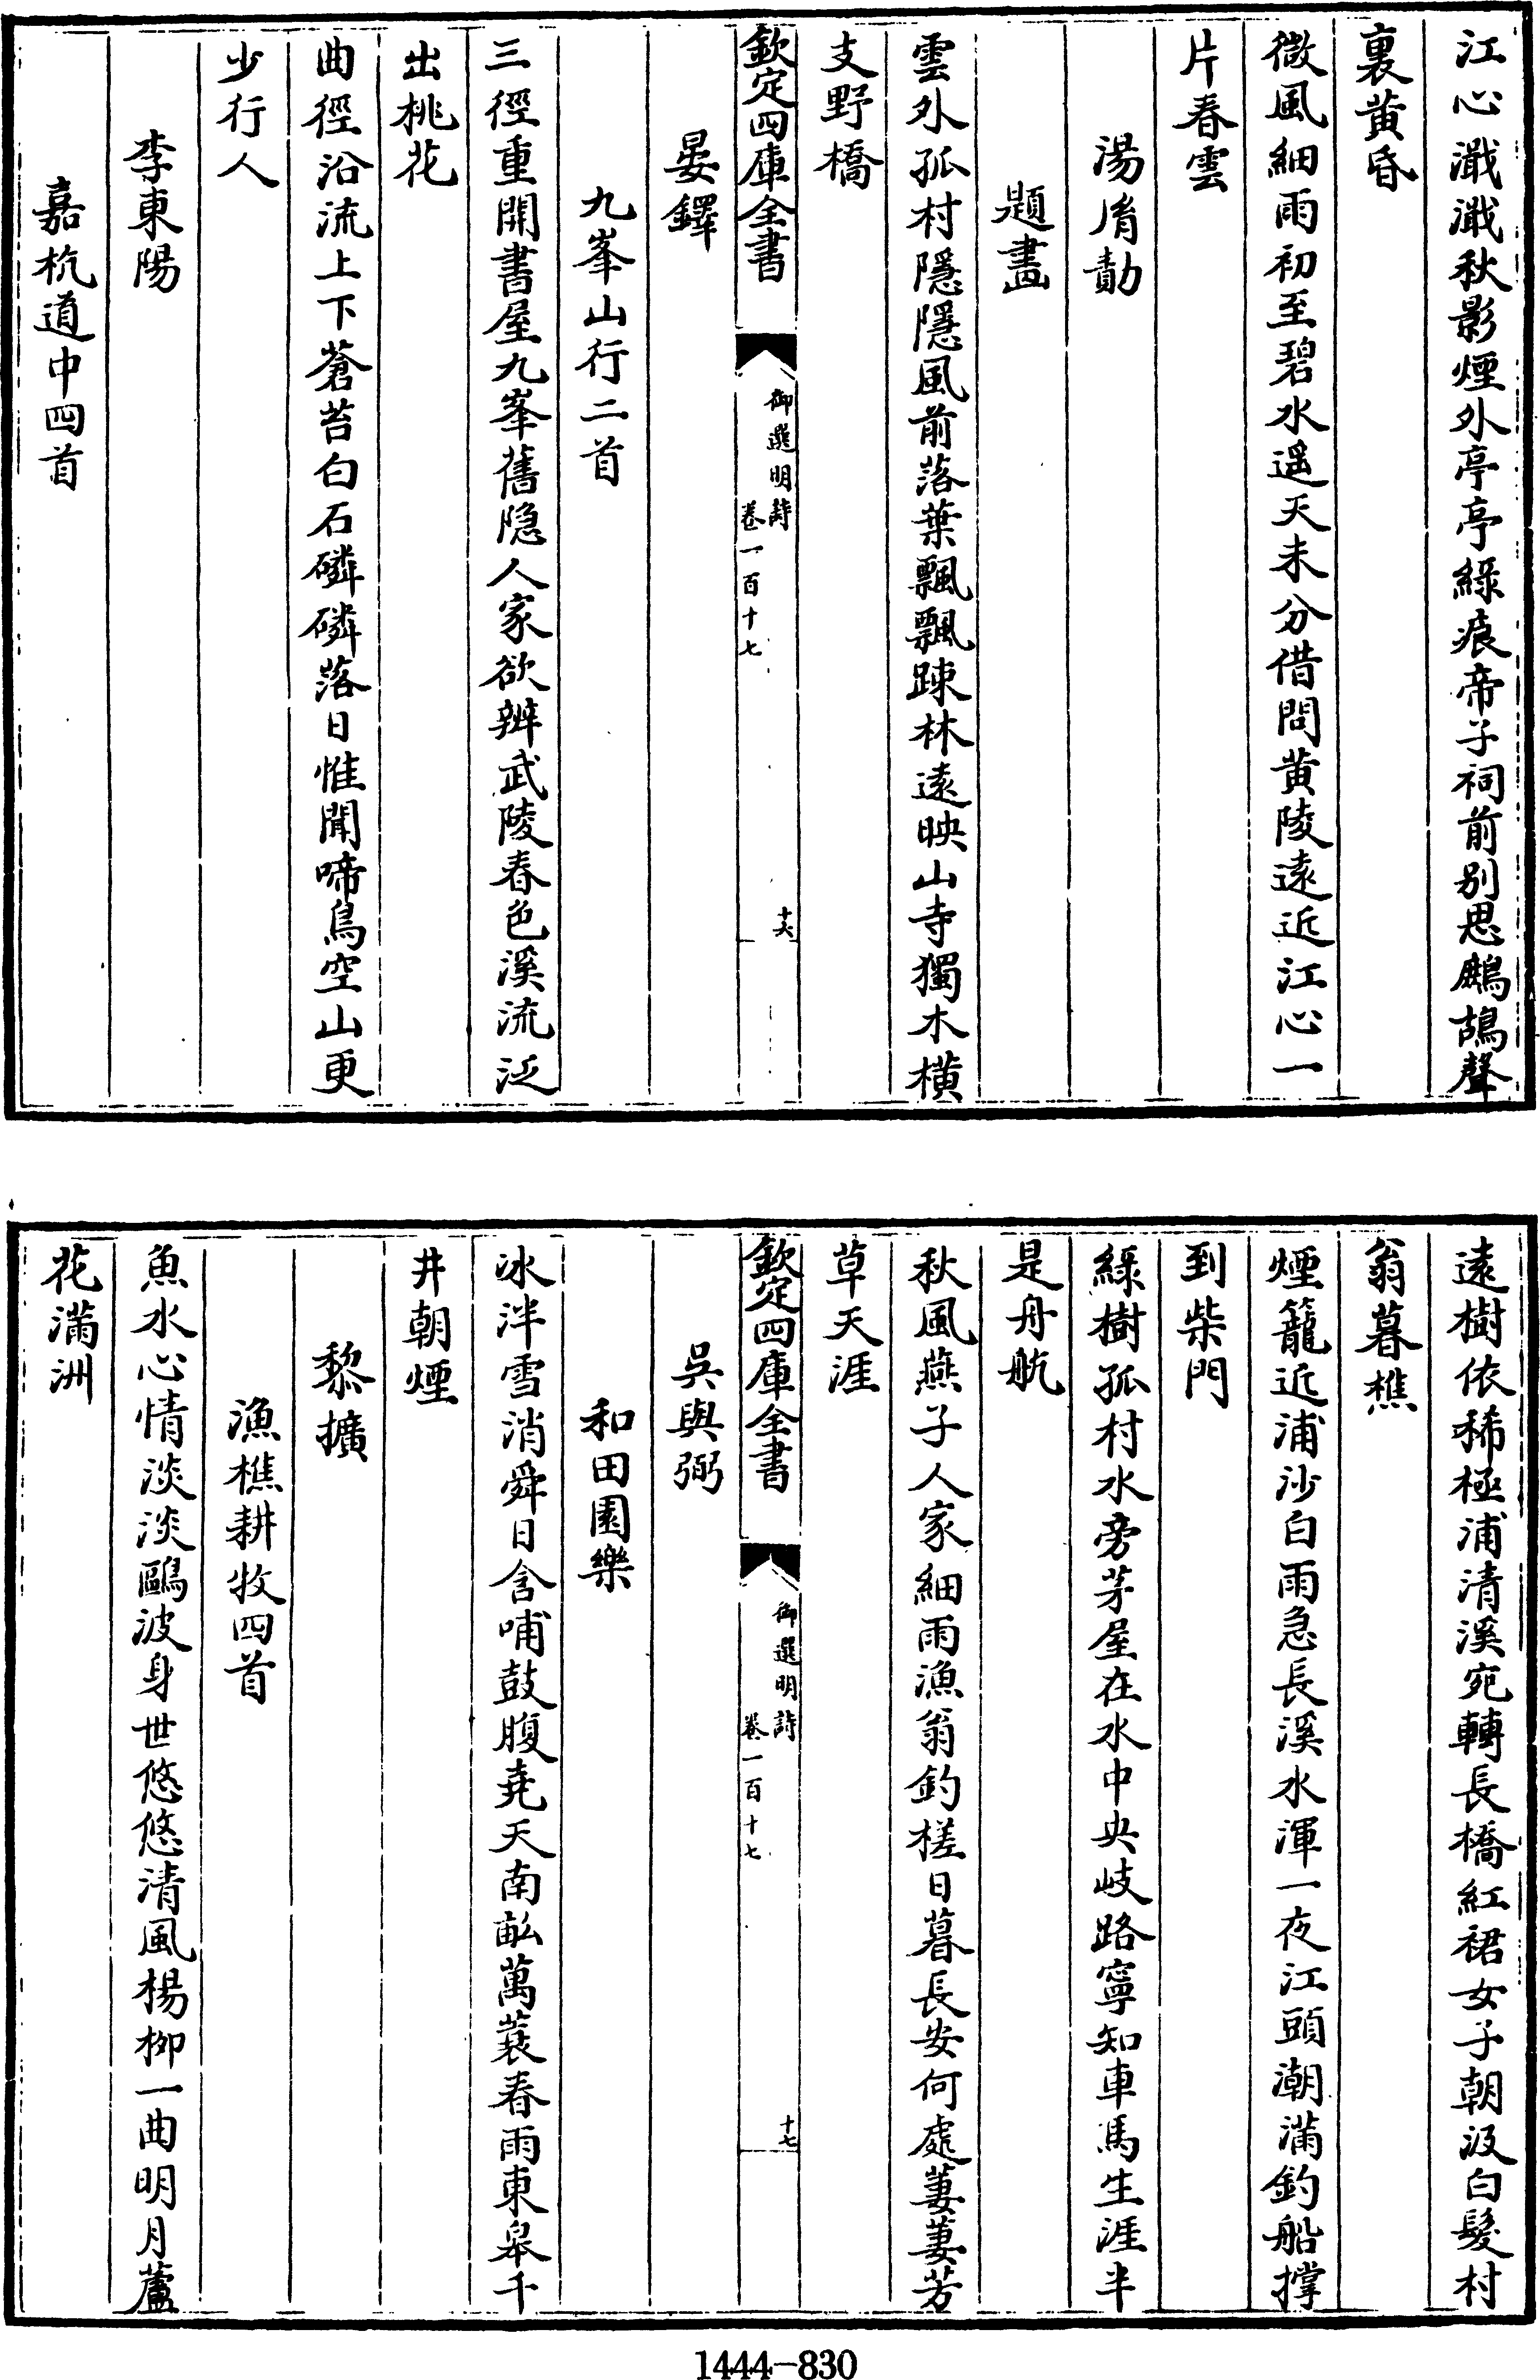 江心濈濈秋影煙外亭亭綠痕帝子祠前别思鷓鴣聲
裏黄昏
微風細雨初至碧水遥天未分借問黄陵遠近江心一
片春雲
湯胤勣
題畫
雲外孤村隱隱風前落葉飄飄踈林遠映山寺獨木橫
支野橋
欽定四庫全書
御選明詩
卷一百十七
十六
晏鐸
九峯山行二首
三徑重開書屋九峯舊隐人家欲辨武陵春色溪流泛
出桃花
曲徑沿流上下蒼苔白石磷磷落日惟聞啼鳥空山更
少行人
李東陽
嘉杭道中四首
遠樹依稀極浦清溪宛轉長橋紅裙女子朝汲白髮村
翁暮樵
煙籠近浦沙白雨急長溪水渾一夜江頭潮滿釣船撑
到柴門
綠樹孤村水旁茅屋在水中央岐路寧知車馬生涯半
是舟航
秋風燕子人家細雨漁翁釣槎日暮長安何處萋萋芳
草天涯
欽定四庫全書
御選明詩
卷一百十七
十七
吳與弼
和田園樂
冰泮雪消舜日含哺鼓腹堯天南畝萬蓑春雨東皋千
井朝煙
黎擴
漁樵耕牧四首
魚水心情淡淡鷗波身世悠悠清風楊柳一曲明月蘆
花滿洲
1444-830